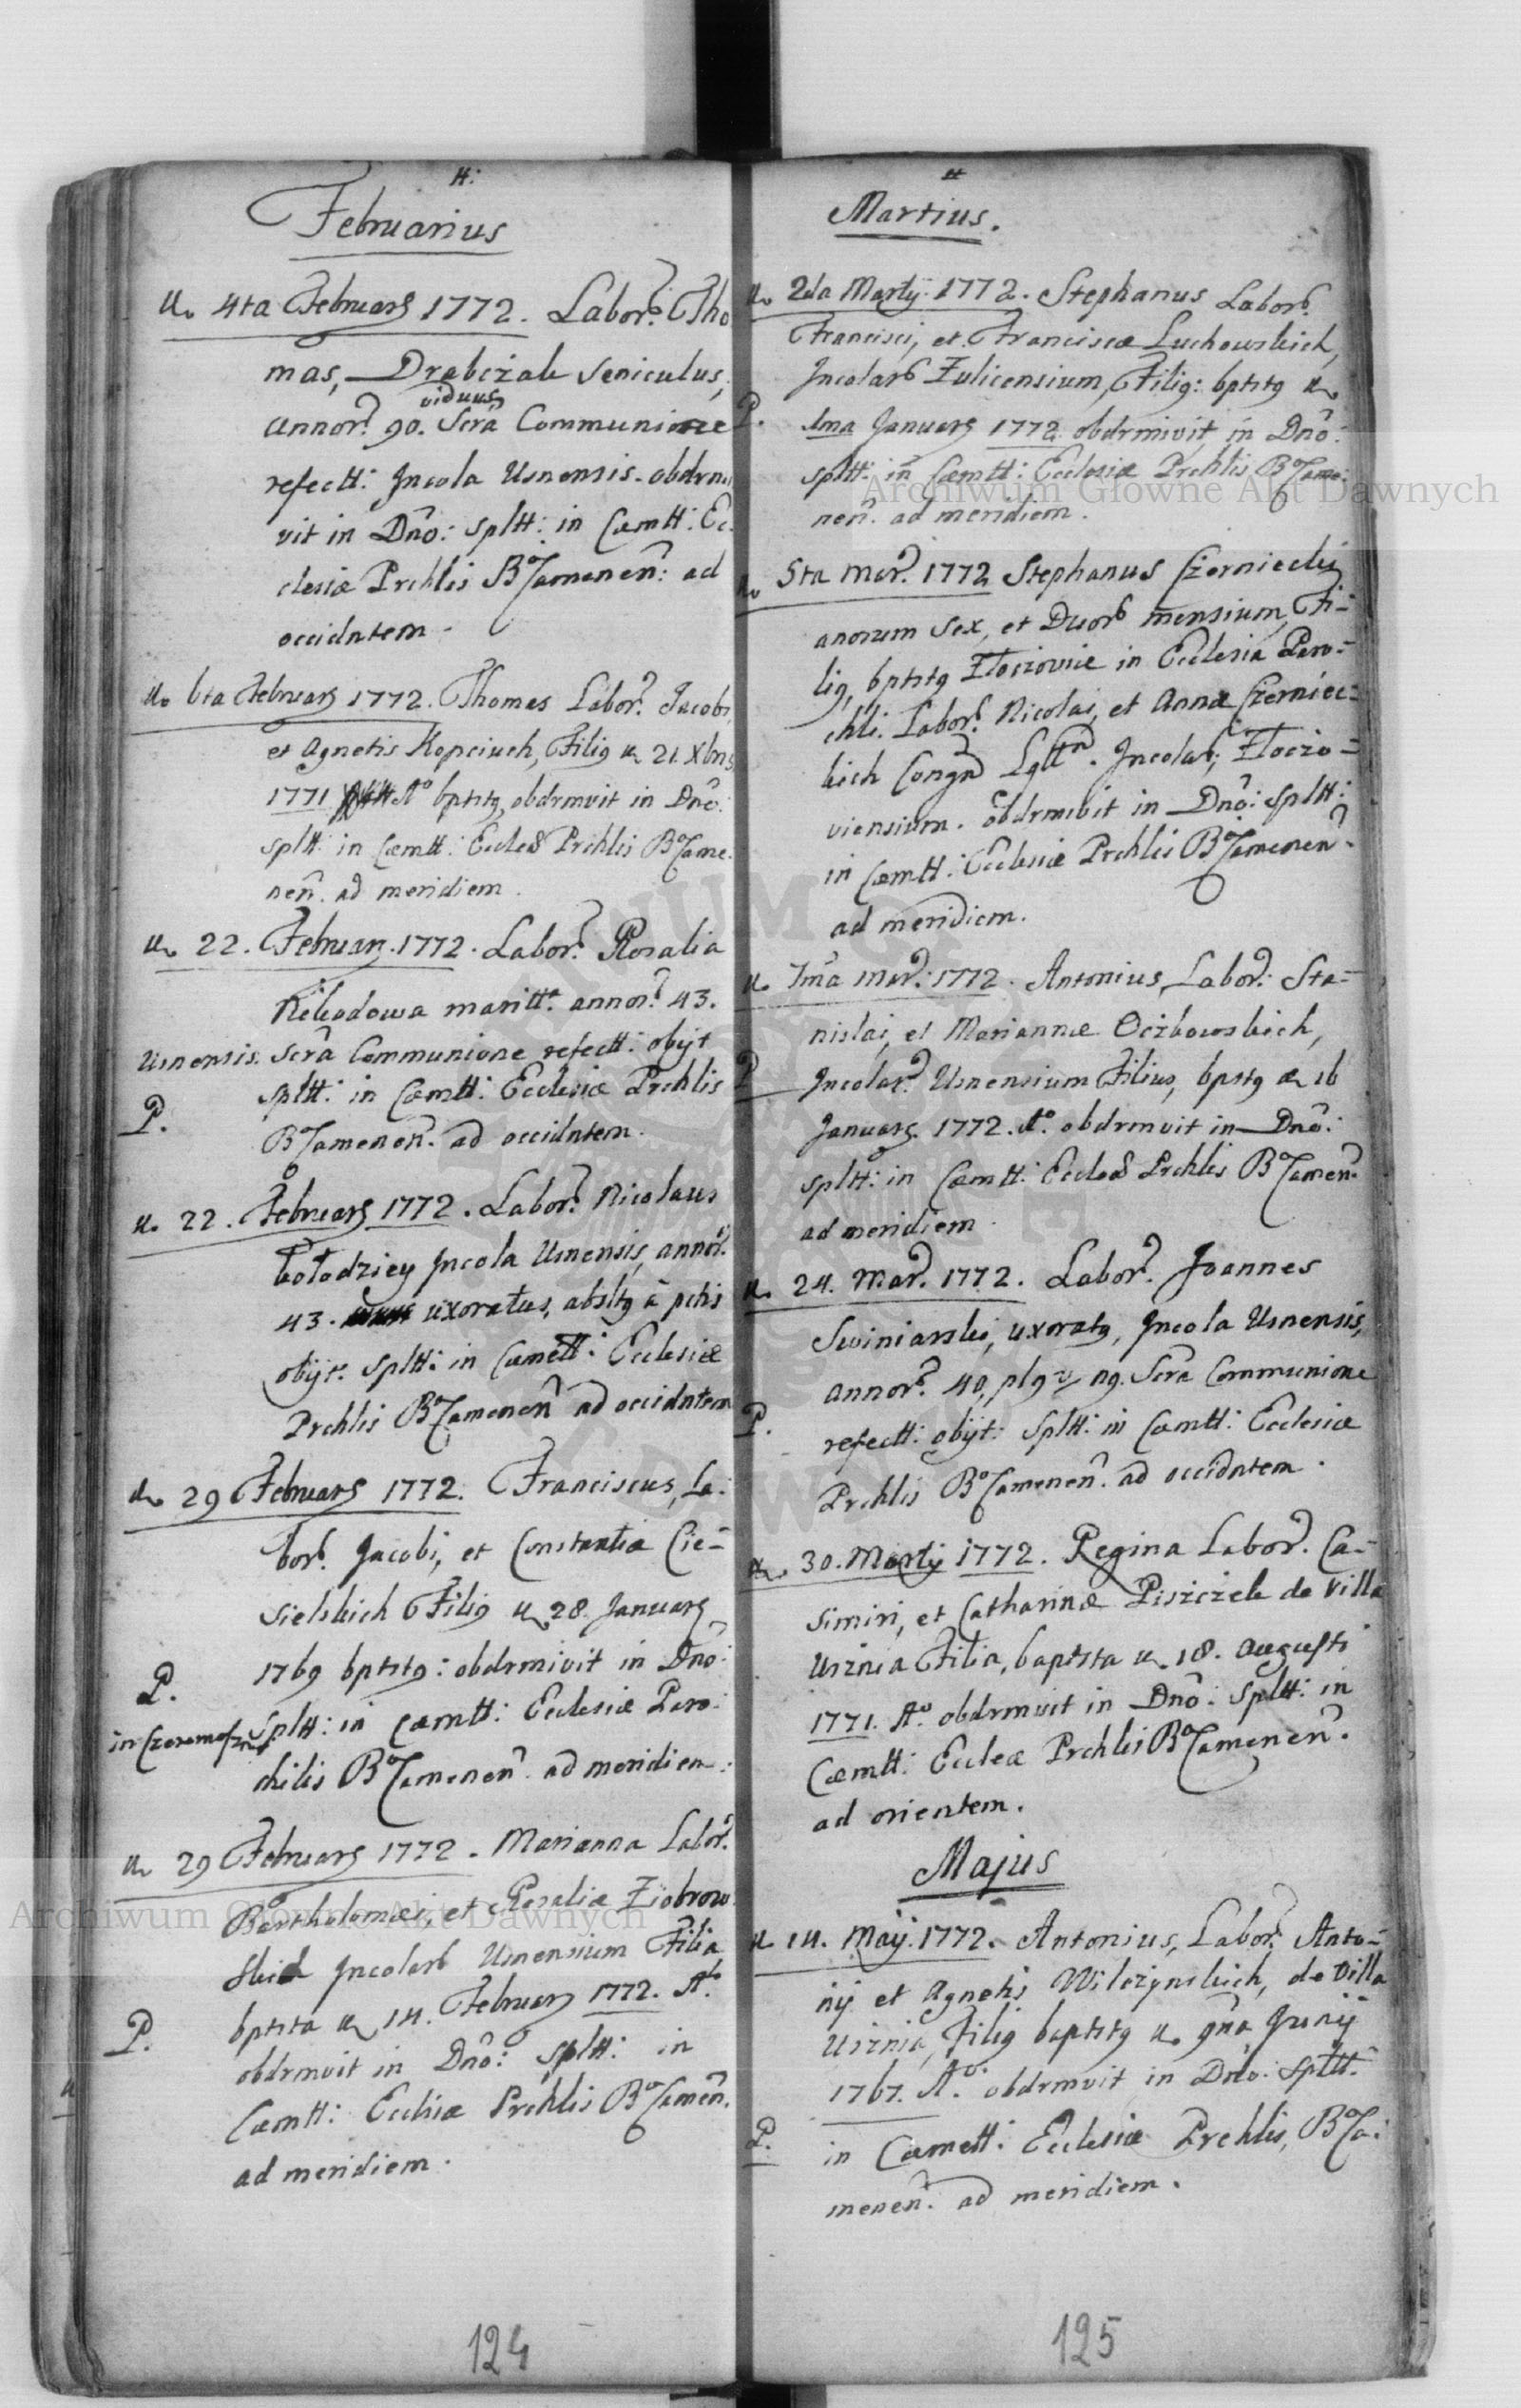 Februarius
4ta Februarȷ 1772. Labor. Tho
mas, Drabczak seniculus,
viduus
Annor. 90. Scrâ Communione
refectt: Incola Usnensis. obdrmi
vit in Dnō: spltt: in Cœmtt: Ec
clesiæ Prchlis B Camenen: ad
occidntem.
6ta Februarȷ 1772. Thomas Labor. Jacobi,
et Agnetis Kopciuch, Filig 21. Xbris
1771 Aº bptstg, obdrmvit in Dnō:
spltt: in Cœmtt: Eccles Prchlis B Came
nen. ad meridiem.
22. Februarȷ. 1772. Labor. Rosalia
maritt. annor. 43.
Usnensis. Scrâ Communione refectt: obijt
spltt: in Cœmtt: Ecclesiæ Prchlis
P.
B Camenen. ad occidntem.
22. Februarȷ 1772. Labor. Nicolaus
Kołodziey Incola Usnensis, annor.
43. uxoratus, absltg â pctis
obijt. spltt: in Cœmett: Ecclesiæ
Prchlis B Camenen ad occidntem
29 Februarȷ 1772. Franciscus, La:
bor. Jacobi, et Constantiæ Cie-
sielskich Filig 28. Januarȷ
1769 bptstg: obdrmivit in Dnō:
P.
spltt: in Cœmtt: Ecclesiæ Paro:
chilis B Camenen. ad meridiem.
29 Februarȷ 1772. Marianna Labor.
Bartholomæi, et Rosaliæ Ziobrow
skich Incolar Usnensium Filia
bptsta 14. Februarȷ 1772. Aº
P.
obdrmvit in Dnō: spltt: in
Cœmtt: Eccliæ Prchlis B Camen.
ad meridiem.
124
Martius.
2da Martij. 1772. Stephanus Labor.
Francisci, et Franciscæ Luchowskich,
Incolar Zulicensium, Filig: bptstg
P.
1ma Januarȷ 1772 obdrmivit in Dnō:
spltt: in Cœmtt: Ecclesiæ Prchlis B Came:
nen. ad meridiem.
5ta Mar. 1772 Stephanus Czerniecki
anorum sex, et Duor mensium, Fi-
lig, bptstg Złoczoviæ in Ecclesia Paro-
chli. Labor. Nicolai, et Annæ Czerniec-
kich Congu Lgtt. Incolar, Złoczo-
viensium. obdrmivit in Dnō: spltt:
in Cœmtt: Ecclesiæ Prchlis B Camenen.
ad meridiem.
7ma Mar. 1772. Antonius, Labor. Sta-
nislai, et Mariannæ Oczkowskich,
P
Incolar. Usnensium Filius, bpstg 16
Januarȷ. 1772. Aº. obdrmvit in Dnō:
spltt: in Cœmtt: Eccles Prchlis B Camen.
ad meridiem.
24. Mar. 1772. Labor. Joannes
Swiniarski, uxoratg, Incola Usnensis,
annor. 40, Scrâ Communione
P.
refectt: obijt: spltt: in Cœmtt: Ecclesiæ
Prchlis B Camenen. ad occidntem.
30. Martij 1772. Regina Labor. Ca-
simiri, et Catharinæ Piszczek de Villa
Usznia Filia, baptsta 18. Augusti
1771. Aº. obdrmvit in Dnō: spltt: in
Cœmtt: Eccleæ Prchlis B Camenen.
ad orientem.
Majus
14. Maij. 1772. Antonius, Labor. Anto-
nij et Agnetis Wilczynskich, de Villa
Usznia, Filig baptstg 9na Junij
1767. Aº. obdrmvit in Dno. spltt.
P.
in Cœmett: Ecclesiæ Prchlis, B Ca:
menen. ad meridiem.
125
Archiwum Główne Akt Dawnych
Archiwum Główne Akt Dawnych